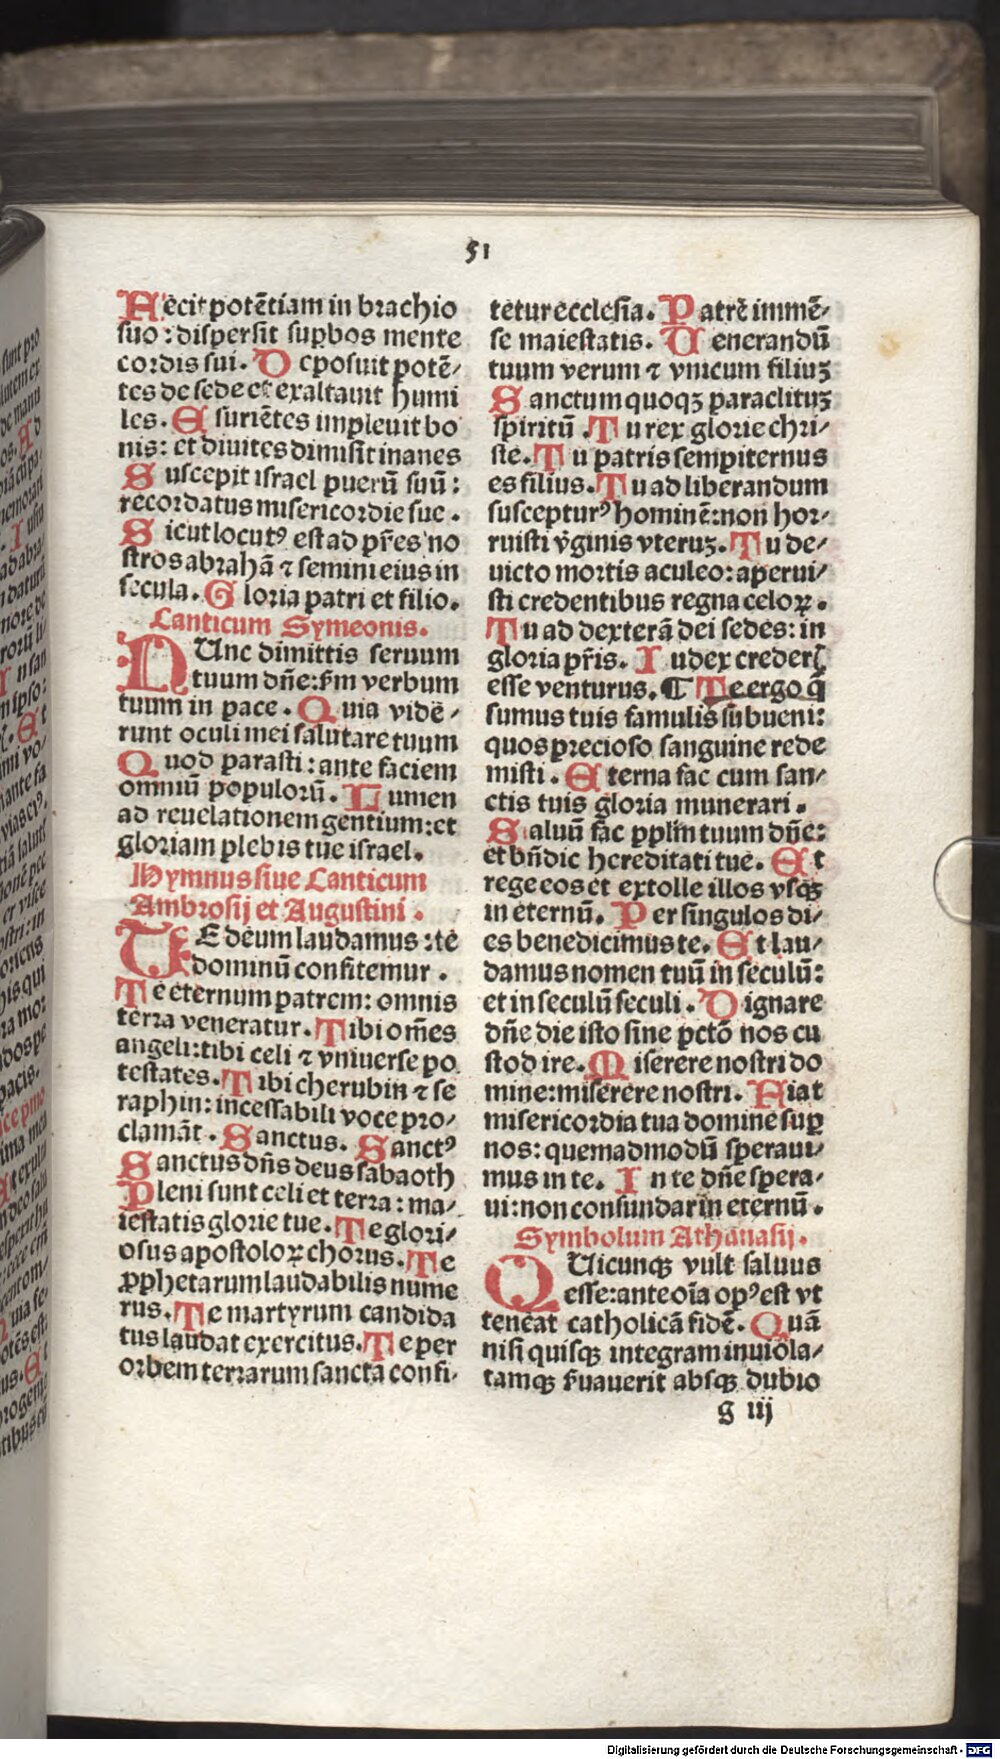 51
Fecit potētiam in brachio
suo : dispersit supbos mente
cordis sui. Deposuit potē⸗
tes de sede et exaltauit humi
les. Esuriētes impleuit bo
nis: et diuites dimisit inanes
Suscepit israel puerū suū :
recordatus misericordie sue .
Sicut locutꝰ est ad pr̄es no
stros abrahā ⁊ semini eius in
secula. Gloria patri et filio.
Canticum Symeonis.
NUnc dimittis seruum
tuum dn̄e: s̄m verbum
tuum in pace . Quia vidē⸗
runt oculi mei salutare tuum
Quod parasti : ante faciem
omniū populorū. Lumen
ad reuelationem gentium: et
gloriam plebis tue israel.
Hymnus siue Canticum
Ambrosij et Augustini .
TE deum laudamus : te
dominū confitemur .
Te eternum patrem: omnis
terra veneratur. Tibi om̄es
angeli: tibi celi ⁊ vniuerse po
testates. Tibi cherubin ⁊ se
raphin: incessabili voce pro⸗
clamāt . Sanctus. Sanctꝰ
Sanctus dn̄s deus sabaoth
Pleni sunt celi et terra: ma⸗
iestatis glorie tue. Te glori⸗
osus apostoloꝝ chorus. Te
ꝓphetarum laudabilis nume
rus. Te martyrum candida
tus laudat exercitus. Te per
orbem terrarum sancta confi⸗
tetur ecclesia. Patrē immē⸗
se maiestatis. Uenerandū
tuum verum ⁊ vnicum filiuꝫ
Sanctum quoqꝫ paraclituꝫ
spiritū . Tu rex glorie chri⸗
ste. Tu patris sempiternus
es filius. Tu ad liberandum
susceptur⁹ hominē: non hor⸗
ruisti v̄ginis vteruꝫ. Tu de⸗
uicto mortis aculeo: aperui⸗
sti credentibus regna celoꝝ.
Tu ad dexterā dei sedes: in
gloria pr̄is. Iudex crederꝭ
esse venturus. ¶ Te ergo q̄
sumus tuis famulis subueni:
quos precioso sanguine rede
misti . Eterna fac cum san⸗
ctis tuis gloria munerari .
Saluū fac pplm̄ tuum dn̄e:
et bn̄dic hereditati tue. Et
rege eos et extolle illos vsqꝫ
in eternū. Per singulos di⸗
es benedicimus te. Et lau⸗
damus nomen tuū in seculū:
et in seculū seculi . Dignare
dn̄e die isto sine pctō nos cu
stodire. Miserere nostri do
mine: miserere nostri. Fiat
misericordia tua domine suꝑ
nos: quemadmodū speraui⸗
mus in te. In te dn̄e spera⸗
ui: non confundar in eternū .
Symbolum Athanasij.
QUicunqꝫ vult saluus
esse: ante oīa opꝰ est vt
teneat catholicā fidē. Quā
nisi quisqꝫ integram inuiola⸗
tamqꝫ s̄uauerit absqꝫ dubio
g iij
Digitalisierung gefördert durch die Deutsche Forschungsgemeinschaft - DFG